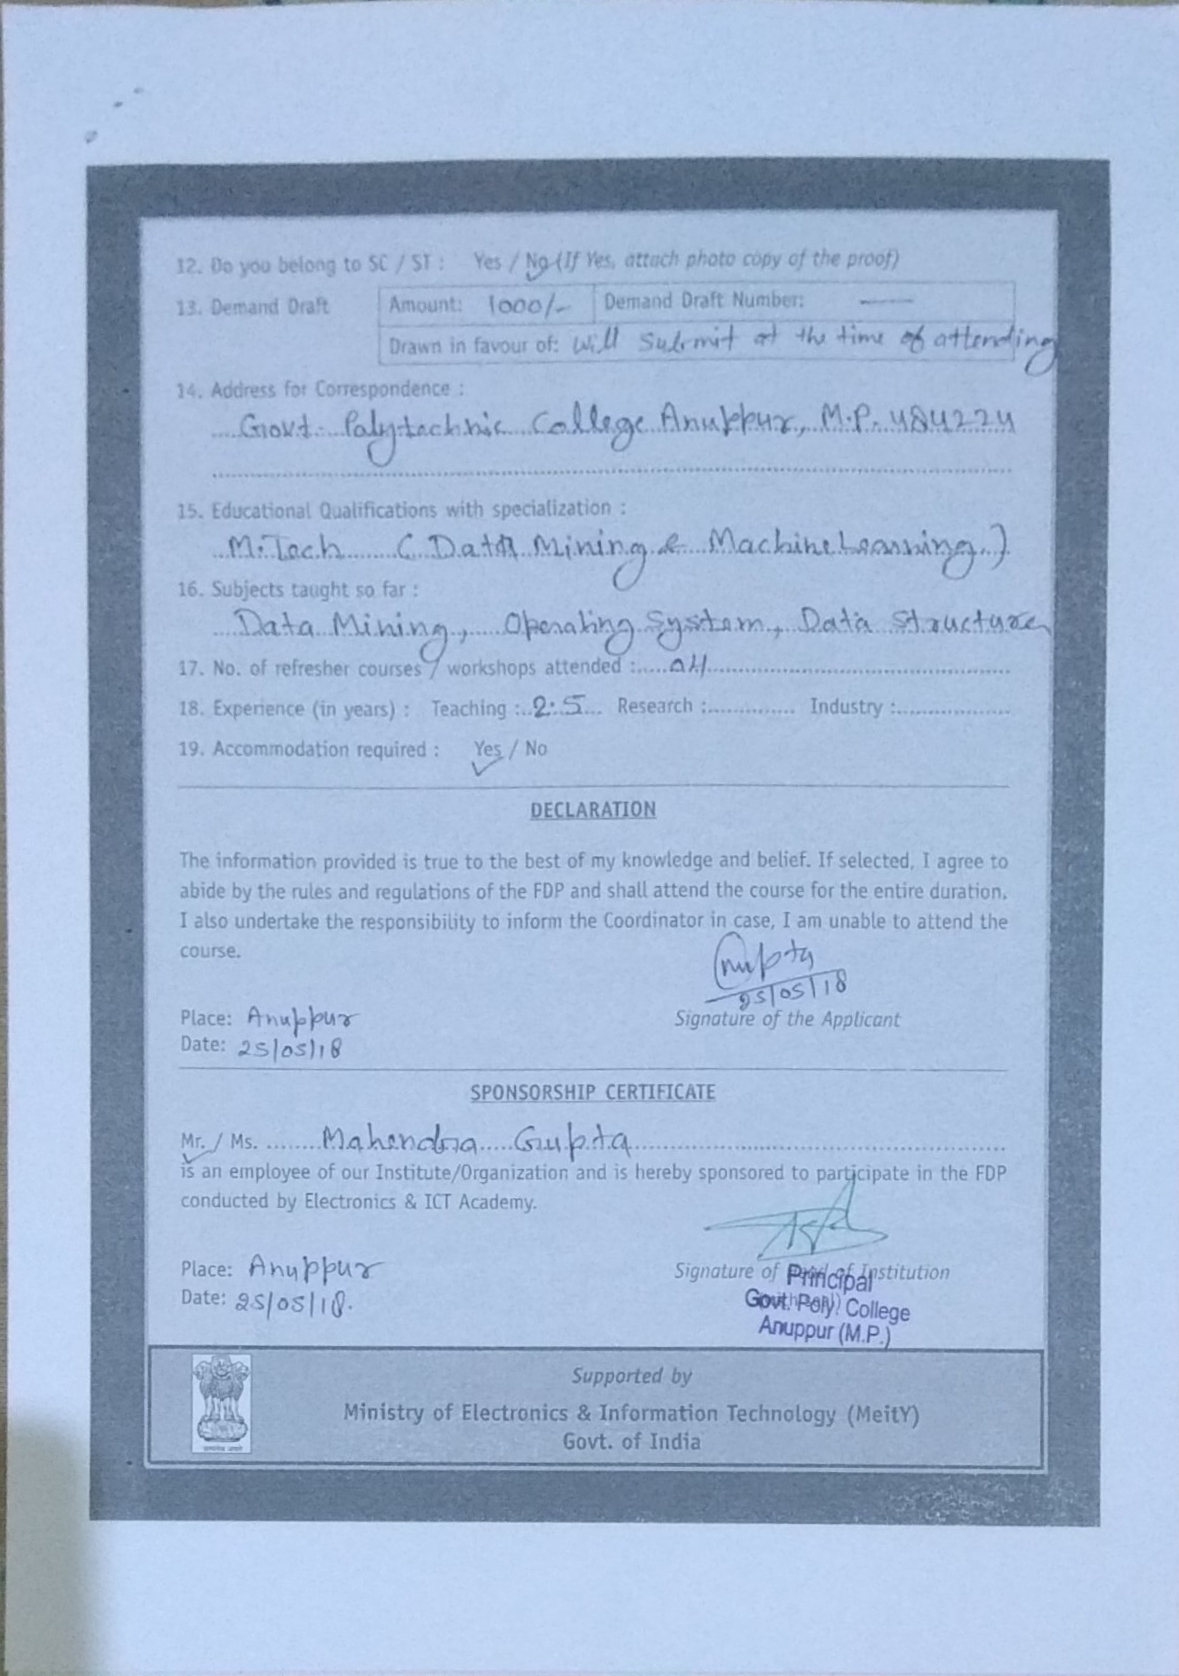 12. Do you belong to SC / ST : Yes / No (If Yes, attach photo copy of the proof)
13. Demand Draft Amount: 1000/- Demand Draft Number: —
Drawn in favour of: Will Submit at the time of attending
14. Address for Correspondence :
Govt. Polytechnic College Anuppur, M.P. 484224
15. Educational Qualifications with specialization :
M.Tech (Data Mining & Machine Learning)
16. Subjects taught so far :
Data Mining, Operating System, Data Structure
17. No. of refresher courses / workshops attended : 04
18. Experience (in years) : Teaching : 2.5 Research : Industry :
19. Accommodation required : Yes / No
DECLARATION
The information provided is true to the best of my knowledge and belief. If selected, I agree to
abide by the rules and regulations of the FDP and shall attend the course for the entire duration.
I also undertake the responsibility to inform the Coordinator in case, I am unable to attend the
course.
Gupta
25/05/18
Place: Anuppur
Signature of the Applicant
Date: 25/05/18
SPONSORSHIP CERTIFICATE
Mr. / Ms. Mahendra Gupta
is an employee of our Institute/Organization and is hereby sponsored to participate in the FDP
conducted by Electronics & ICT Academy.
Place: Anuppur
Signature of Institution
Principal
Date: 25/05/18.
Govt. Poly. College
Anuppur (M.P.)
Supported by
Ministry of Electronics & Information Technology (MeitY)
Govt. of India